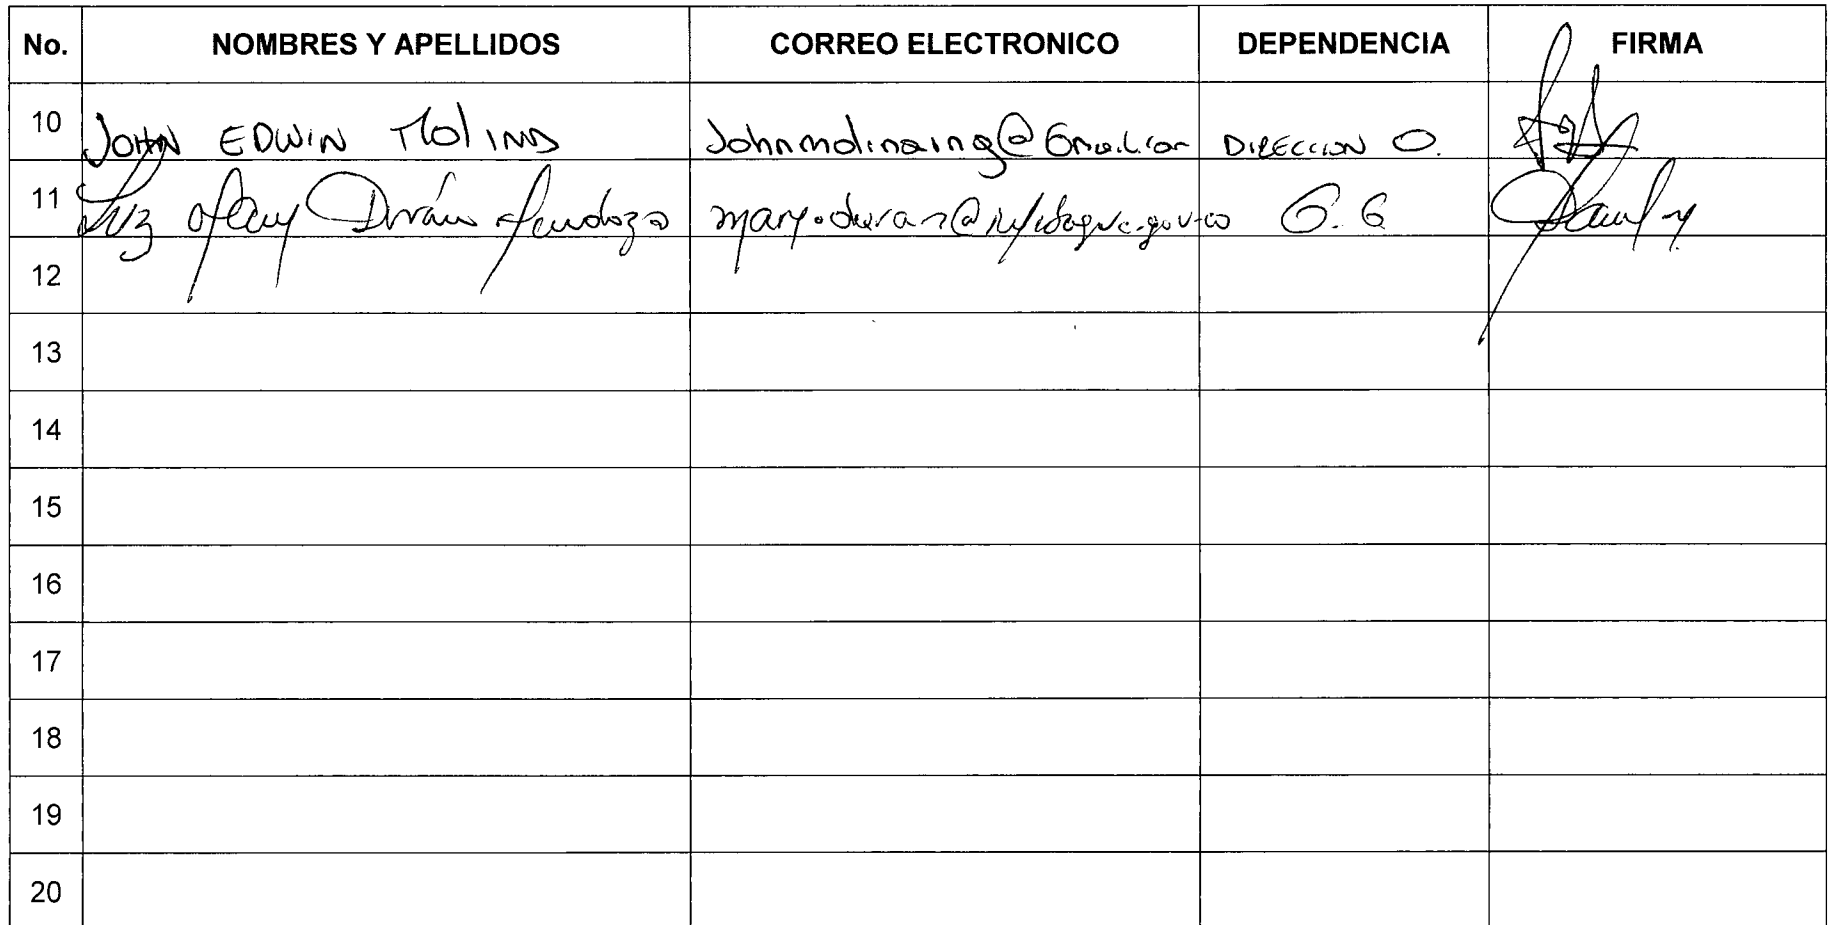 No. NOMBRES Y APELLIDOS CORREO ELECTRONICO DEPENDENCIA FIRMA
10 JOHN EDWIN MOLINA Johnmolinaing@Gmail.com DIRECCION O.
11 Luz Mary Durán Mendoza G.G
12
13
14
15
16
17
18
19
20